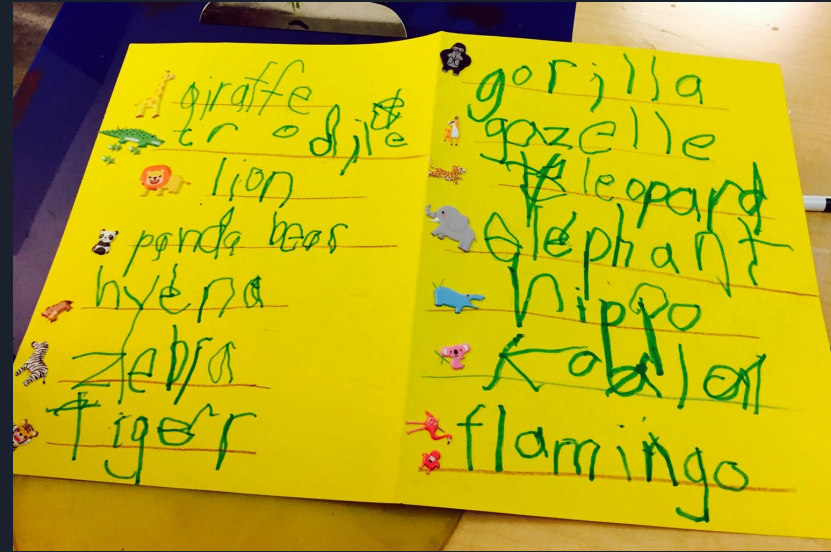 giraffe
crodile
lion
panda bear
hyena
zebra
Tiger
gorilla
gazelle
leopard
elephant
hippo
flamingo